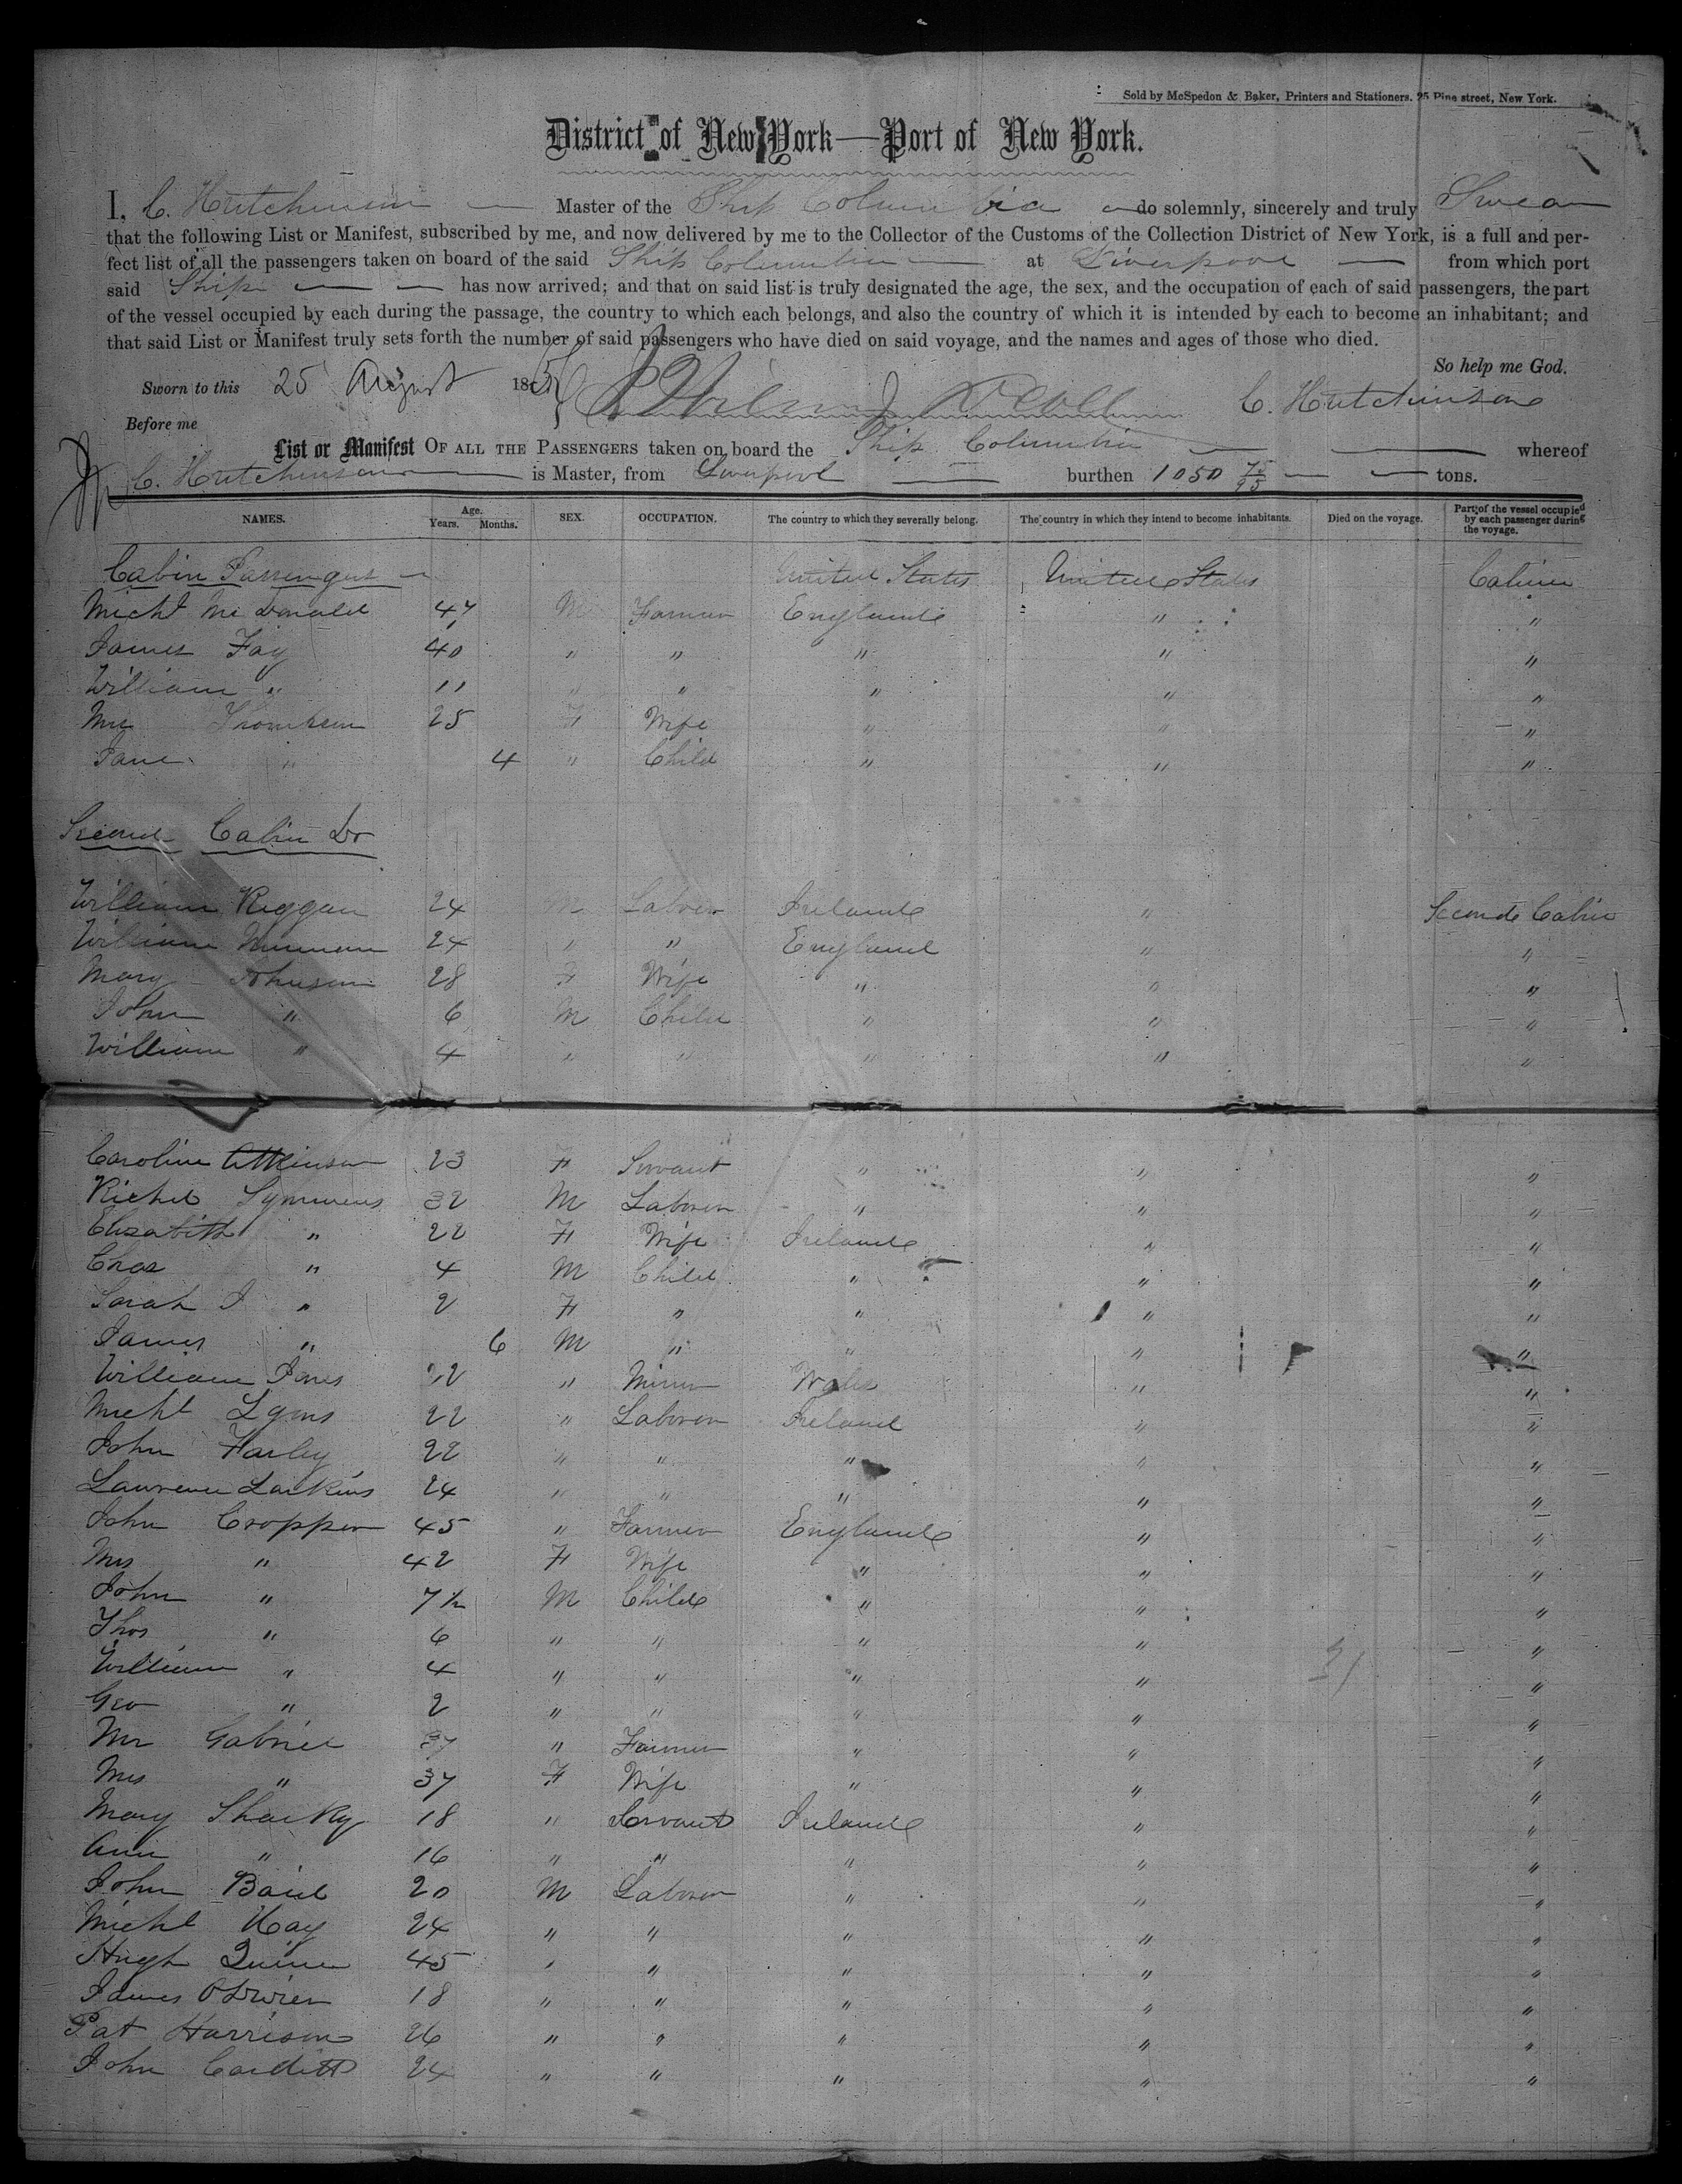 Sold by McSpedon & Baker, Printers and Stationers. 25 Pine street, New York.
District of New York—Port of New York.
I, C. Hutchinson Master of the Ship Columbia do solemnly, sincerely and truly Swear
that the following List or Manifest, subscribed by me, and now delivered by me to the Collector of the Customs of the Collection District of New York, is a full and per-
fect list of all the passengers taken on board of the said Ship Columbia at Liverpool from which port
said Ship has now arrived; and that on said list is truly designated the age, the sex, and the occupation of each of said passengers, the part
of the vessel occupied by each during the passage, the country to which each belongs, and also the country of which it is intended by each to become an inhabitant; and
that said List or Manifest truly sets forth the number of said passengers who have died on said voyage, and the names and ages of those who died.
So help me God.
Sworn to this 25 August 185 C. Hutchinson
Before me
List or Manifest OF ALL THE PASSENGERS taken on board the Ship Columbia whereof
C. Hutchinson is Master, from Liverpool burthen 1050 75/95 tons.
NAMES. Age. Years. Months. SEX. OCCUPATION. The country to which they severally belong. The country in which they intend to become inhabitants. Died on the voyage. Part of the vessel occupied by each passenger during the voyage.
Cabin Passengers United States United States Cabin
Michl McDonald 47 M Farmer England " "
James Fay 40 " " " " "
William " 11 " " " " "
Mrs Thompson 25 F Wife " " "
Jane " 4 " Child " " "
Second Cabin Do
William Reggan 24 M Laborer Ireland " Second Cabin
William 24 " " England " "
Mary Johnson 28 F Wife " " "
John " 6 M Child " " "
William " 4 " " " " "
Caroline Attkinson 23 F Servant " " "
Richd Symmens 32 M Laborer " " "
Elizabeth " 22 F Wife Ireland " "
Chas " 4 M Child " " "
Sarah J " 2 F " " " "
James " 6 M " " " "
William Jones 22 " Miner Wales " "
Michl Lyons 22 " Laborer Ireland " "
John Farley 22 " " " " "
Lawrence Larkins 24 " " " " "
John Cropper 45 " Farmer England " "
Mrs " 42 F Wife " " "
John " 7½ M Child " " "
Thos " 6 " " " " "
William " 4 " " " " "
Geo " 2 " " " " "
Mr Gabriel 37 " Farmer " " "
Mrs " 37 F Wife " " "
Mary Sharky 18 " Servant Ireland " "
Ann " 16 " " " " "
John Baid 20 M Laborer " " "
Michl Kay 24 " " " " "
Hugh Quinn 45 " " " " "
James ODwier 18 " " " " "
Pat Harrison 26 " " " " "
John 24 " " " " "